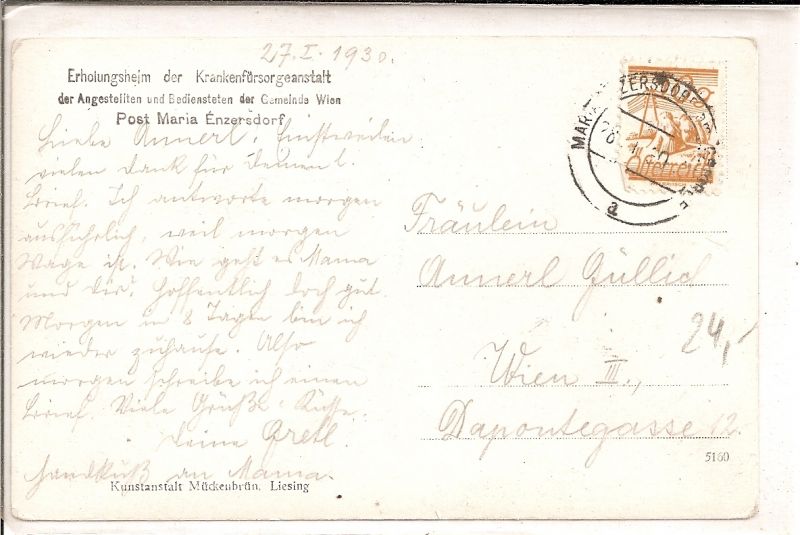 27.I.1930.
Erholungsheim der Krankenfürsorgeanstalt
der Angestellten und Bediensteten der Gemeinde Wien
Post Maria Enzersdorf
Liebe Annerl, Einstweilen
vielen Dank für Deinen l.
Brief. Ich antworte morgen
ausführlich, weil morgen
Wage ist. Wie geht es Mama
und Dir? Hoffentlich doch gut.
Morgen in 8 Tagen bin ich
wieder zuhause. Also
morgen schreibe ich einen
Brief. Viele Grüße Küsse,
Deine Gretl.
Handkuß an Mama.
Kunstanstalt Mückenbrün. Liesing
MARIA ENZERSDORF am
a
Österreich
Fräulein
Annerl Güllich
Wien III.,
Dapontegasse 12.
24,-
5160